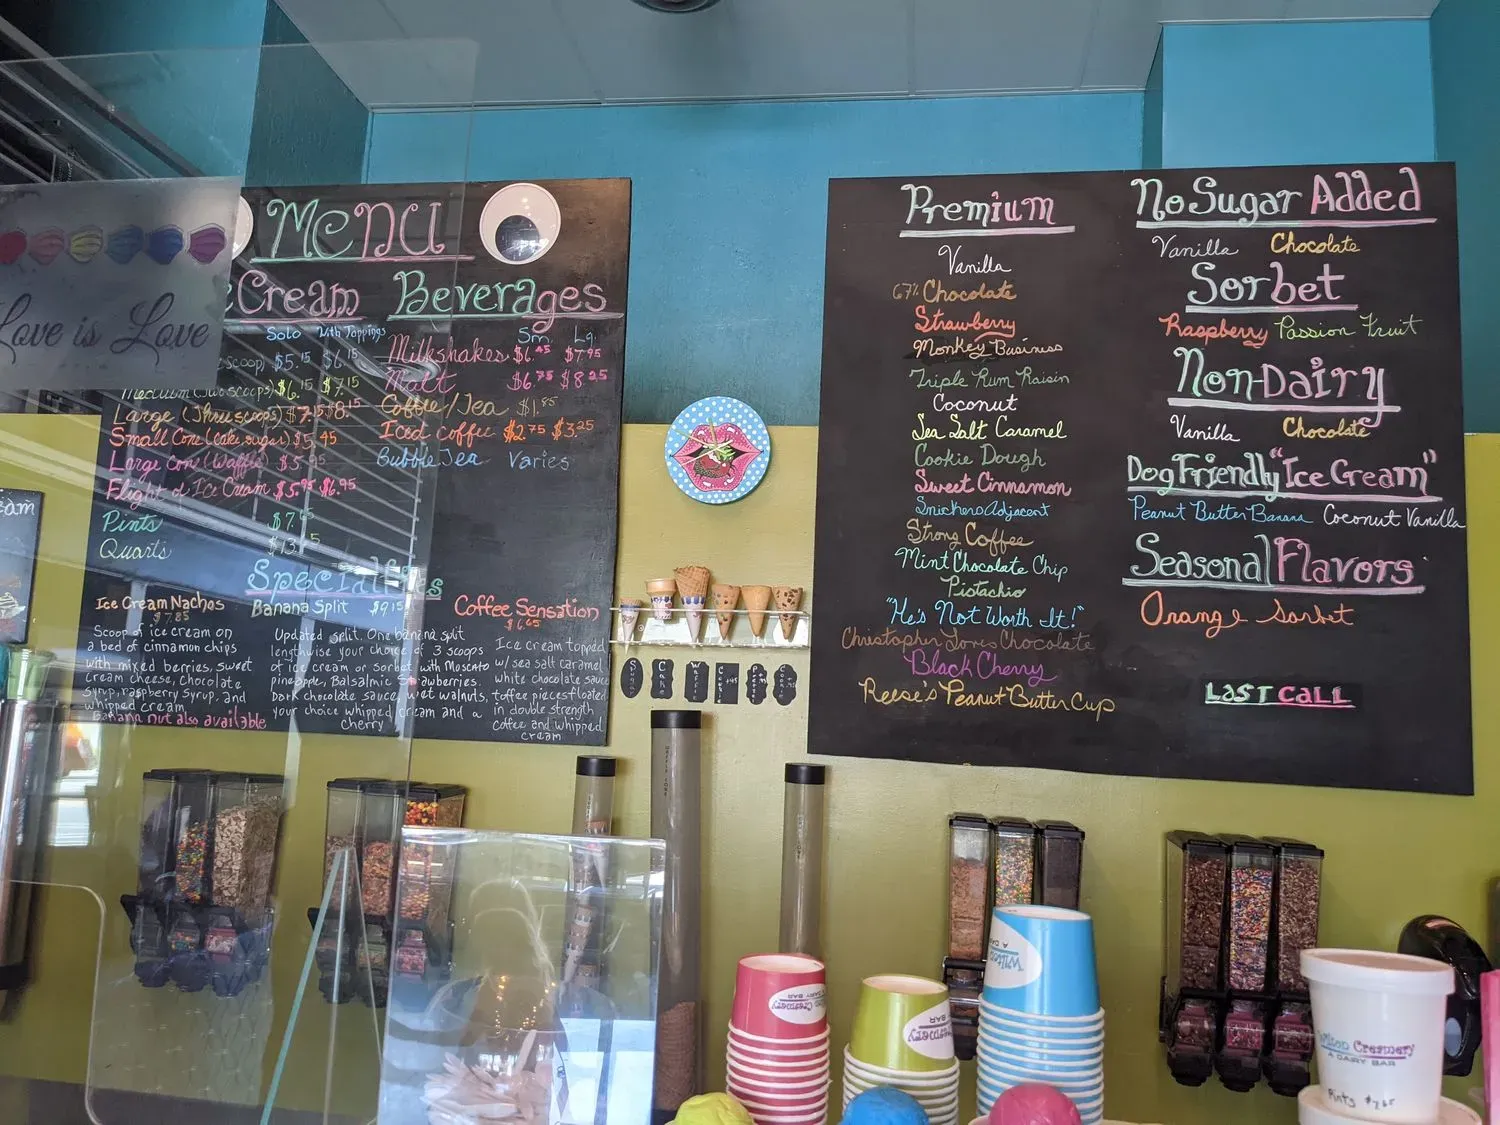 Love is Love
Menu
Cream
Solo With Toppings
scoop) $5.15 $6.15
Medium (two scoops) $6.15 $7.15
Large (Three scoops) $7.15 $8.15
Small Cone (cake, sugar) $5.45
Large Cone (Waffle)
Flight of Ice Cream $5.95 $6.95
Pints
Quarts
Beverages
Sm. Lg.
Milkshakes $6.45 $7.95
Malt $6.75 $8.25
Coffee/Tea $1.85
Iced coffee $2.75 $3.25
Bubble Tea Varies
Specialties
Ice Cream Nachos
$7.85
Scoop of ice cream on
a bed of cinnamon chips
with mixed berries, sweet
cream cheese, chocolate
syrup, raspberry syrup, and
whipped cream
Banana nut also available
Banana Split $9.15
Updated split. One banana split
lengthwise your choice of 3 scoops
of ice cream or sorbet with Moscato
pineapple, Balsalmic Strawberries.
Dark chocolate sauce, wet walnuts,
your choice whipped cream and a
cherry
Coffee Sensation
$6.65
Ice cream topped
w/ sea salt caramel
white chocolate sauce
toffee pieces floated
in double strength
coffee and whipped
cream
Sugar
Cake
Waffle
Premium
Vanilla
67% Chocolate
Strawberry
Monkey Business
Triple Rum Raisin
Coconut
Sea Salt Caramel
Cookie Dough
Sweet Cinnamon
Snickers Adjacent
Strong Coffee
Mint Chocolate Chip
Pistachio
"He's Not Worth It!"
Christopher Loves Chocolate
Black Cherry
Reese's Peanut Butter Cup
No Sugar Added
Vanilla Chocolate
Sorbet
Raspberry Passion Fruit
Non-Dairy
Vanilla Chocolate
Dog Friendly "Ice Cream"
Peanut Butter Banana Coconut Vanilla
Seasonal Flavors
Orange Sorbet
Last Call
Wilton Creamery
A DAIRY BAR
Pints $7.65